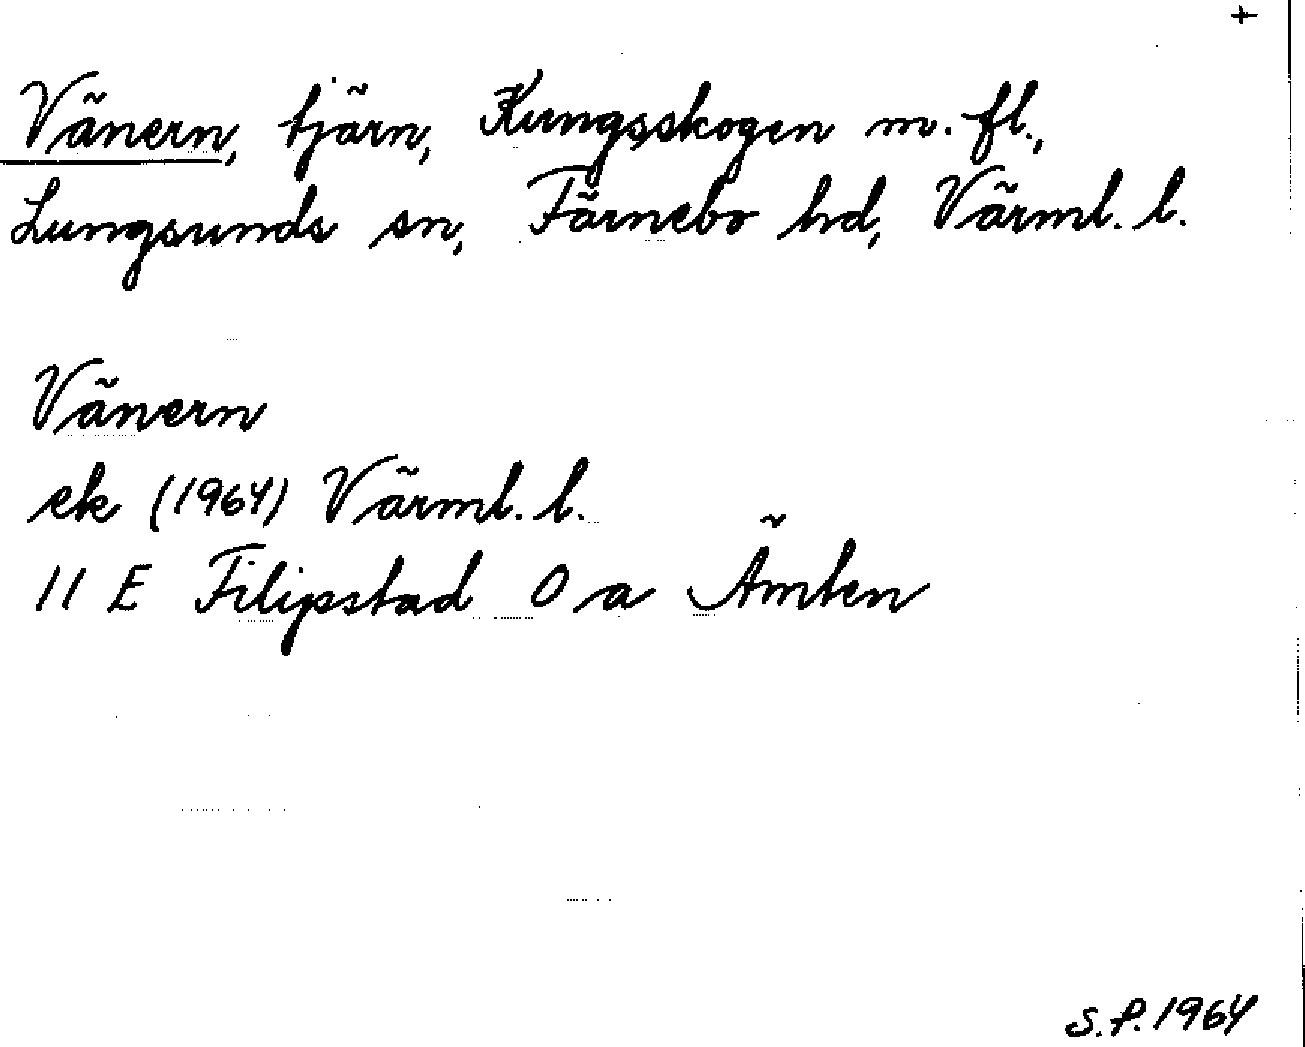 +
Vänern, tjärn, Kungsskogen m. fl.,
Lungsunds sn, Färnebo hd, Värml. l.
Vänern
ek (1964) Värml. l.
11 E Filipstad 0 a Ämten
S.P. 1964